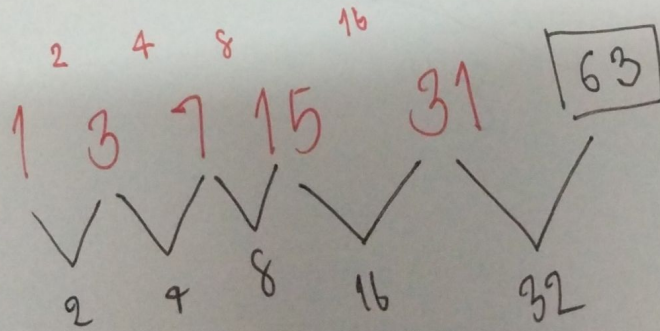 2 4 8 16
1 3 7 15 31 63
2 4 8 16 32